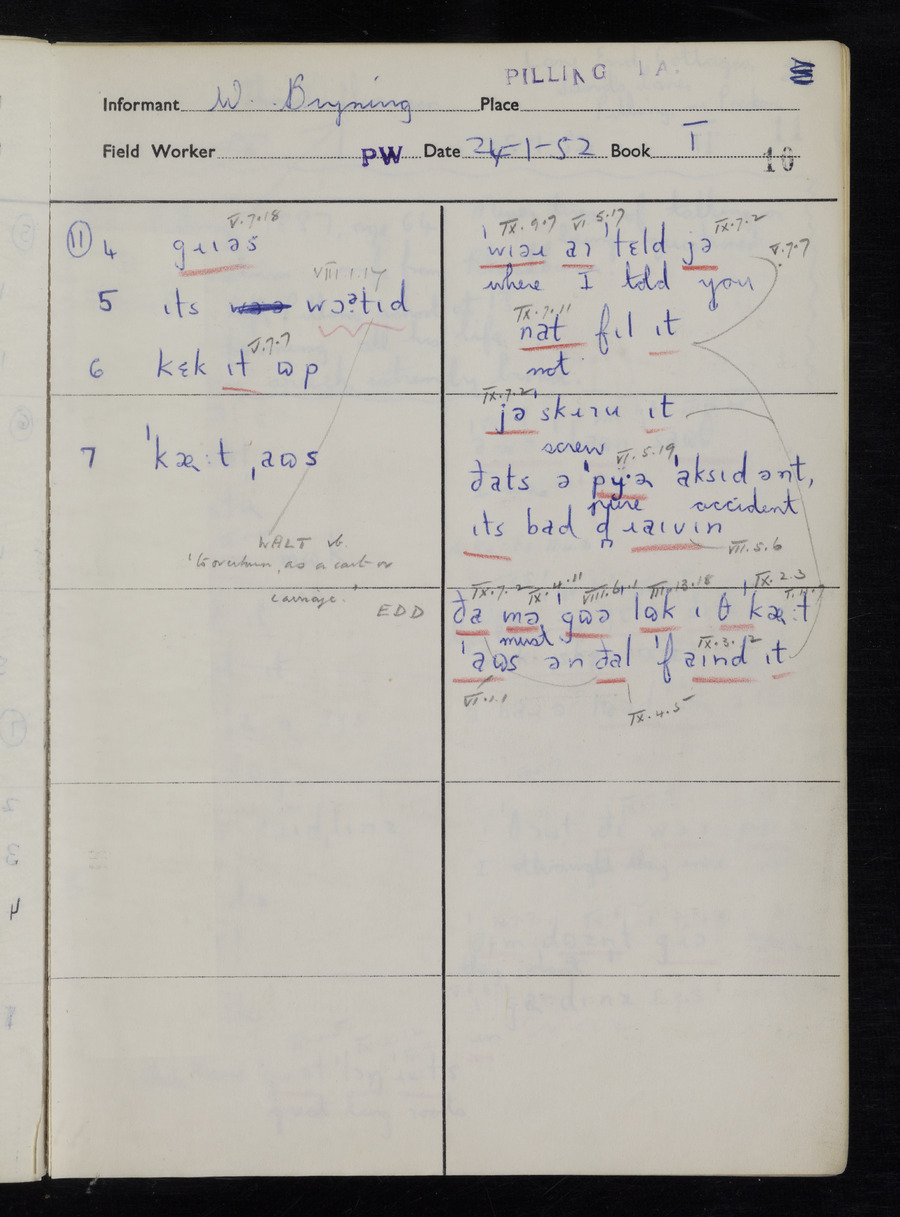 PILLING LA.
Informant W. Bryning Place
Field Worker PW Date 24-1-52 Book I
10
V.7.18
⑪ 4 gɹɩəs
VIII.1.14
5 ɩts wɔəʔtɩd
V.7.7
6 kɛk ɩt ɷp
7 ˈkæːt ˌaɷs
WALT vb.
'to overturn, as a cart or
carriage.'
EDD
IX.9.7 VI 5.17 IX.7.2
ˈwɩəɹ aɪ ˈtɛld jə
V.7.7
where I told you
IX.7.11
nat fɩl ɩt
not
IX.7.2
jə skɹɪu ɩt
screw VI.5.19
ðats ə ˈpy·ə ˈaksɩdənt,
pure accident
ɩts bad dɹaɩvɩn
VII.5.6
IX.7.2 IX.4.11 VIII.6.1 III.13.18 IX.2.3
ðə mə ˈgɷə lɷk ɩ θ ˈkæːt
must IX.3.2
ˈaɷs ən ðal ˈfaɩnd ɩt
VI.1.1
IX.4.5